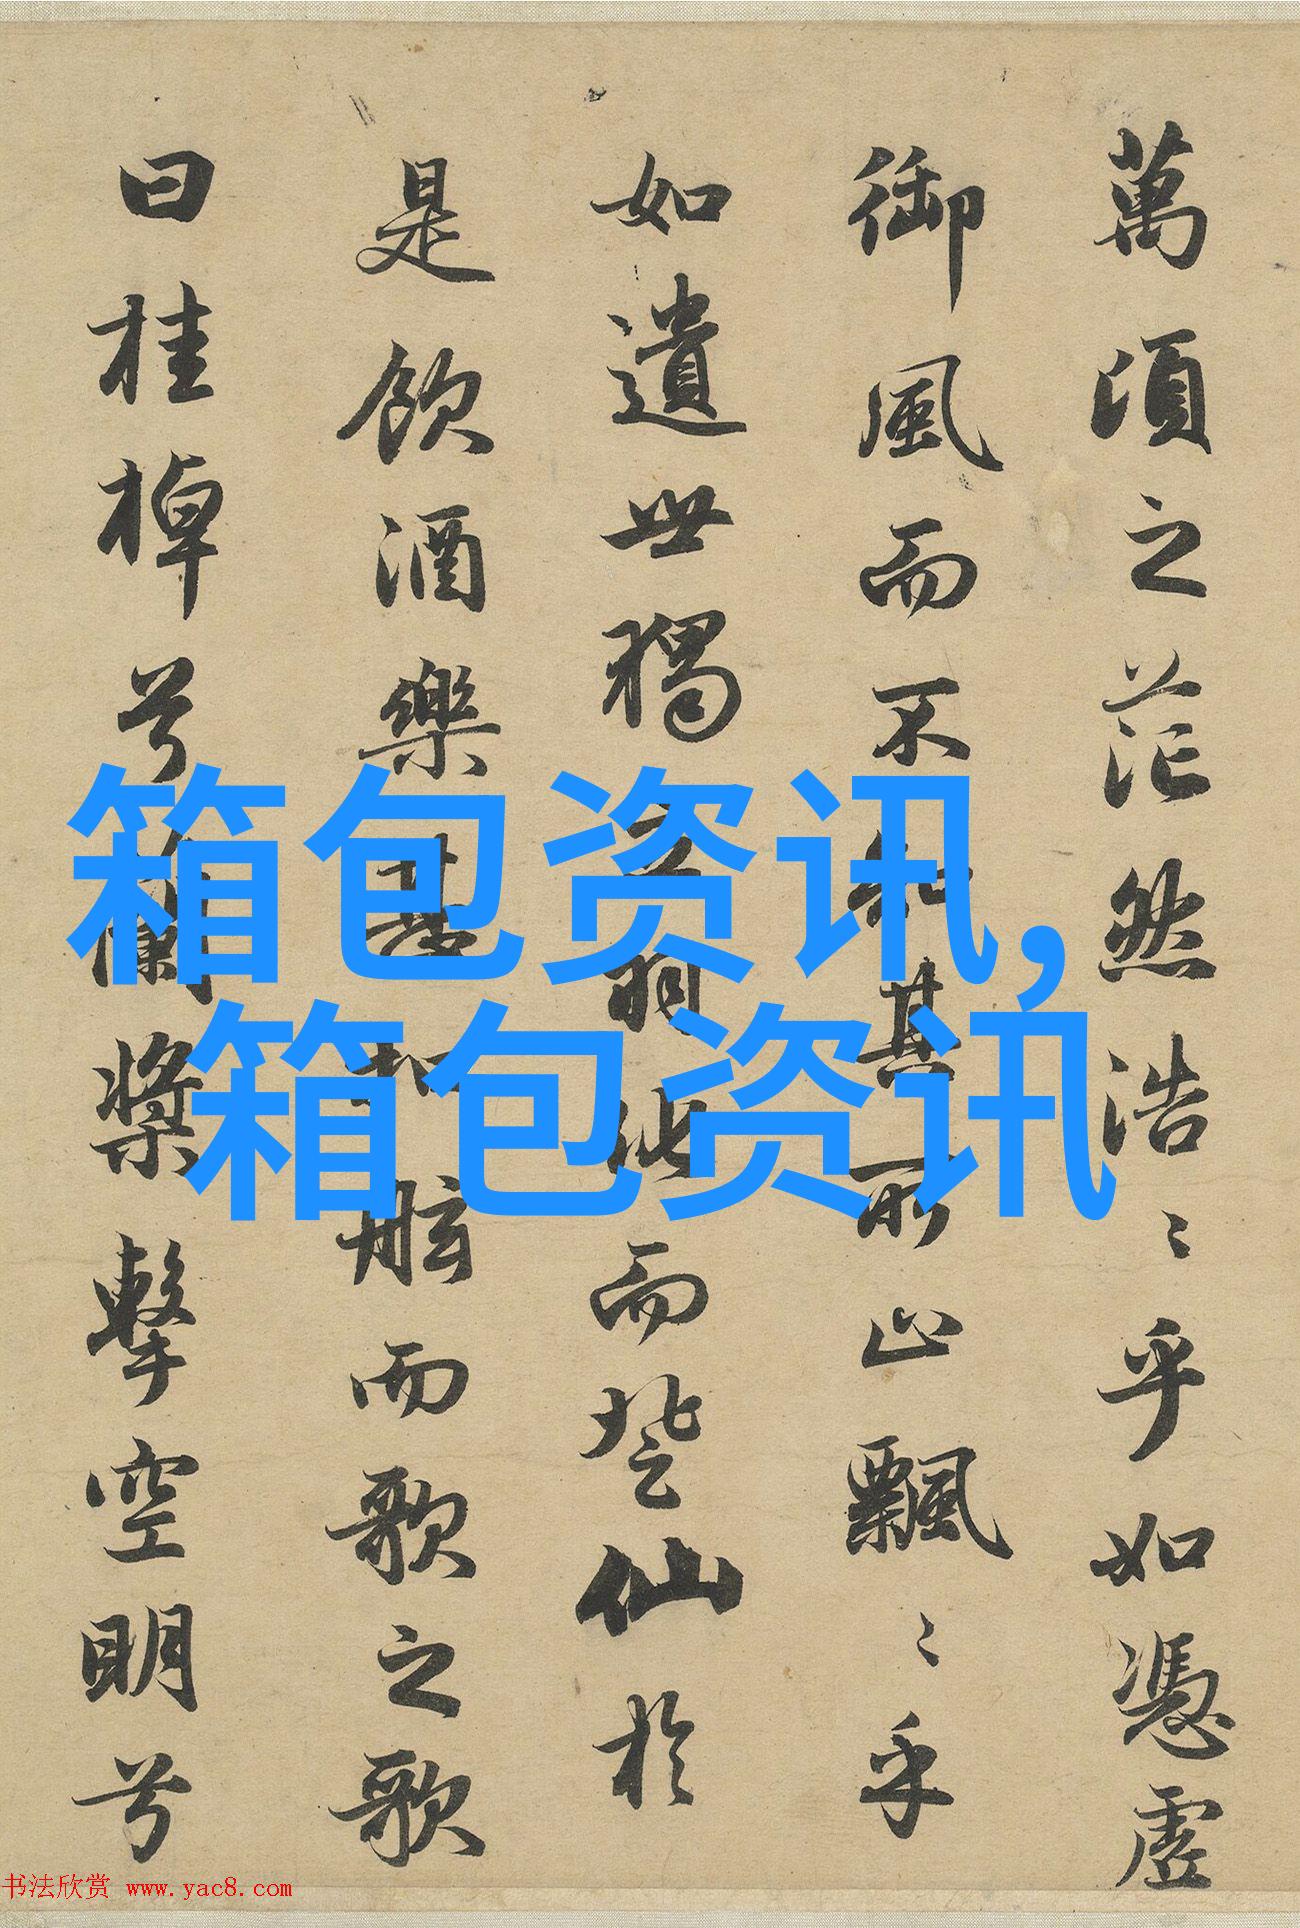 萬頃之茫然浩〻乎如憑虛
御風而不知其所止飄〻乎
如遺世獨立羽化而登仙於
是飲酒樂甚扣舷而歌之歌
曰桂棹兮蘭槳擊空明兮
箱包资讯,
箱包资讯
书法欣赏 www.yac8.com